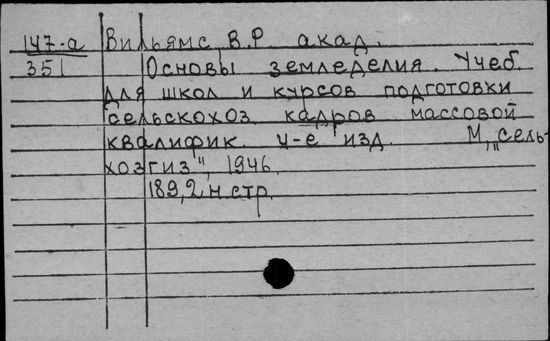 147-а Вильямс, В.Р. акад.
351 Основы земледелия. Учеб.
для школ и курсов подготовки
сельскохоз. кадров массовой
квалифик. 4-е изд. М., „Сель-
хозгиз", 1946.
189, 2 н. стр.